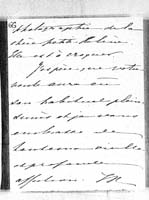 photographie de la
chère petite
Elle est à croquer
J'espère que votre
aura eu
son habituel plein
succès et je vous
embrasse de
tendresse
et profonde
affection